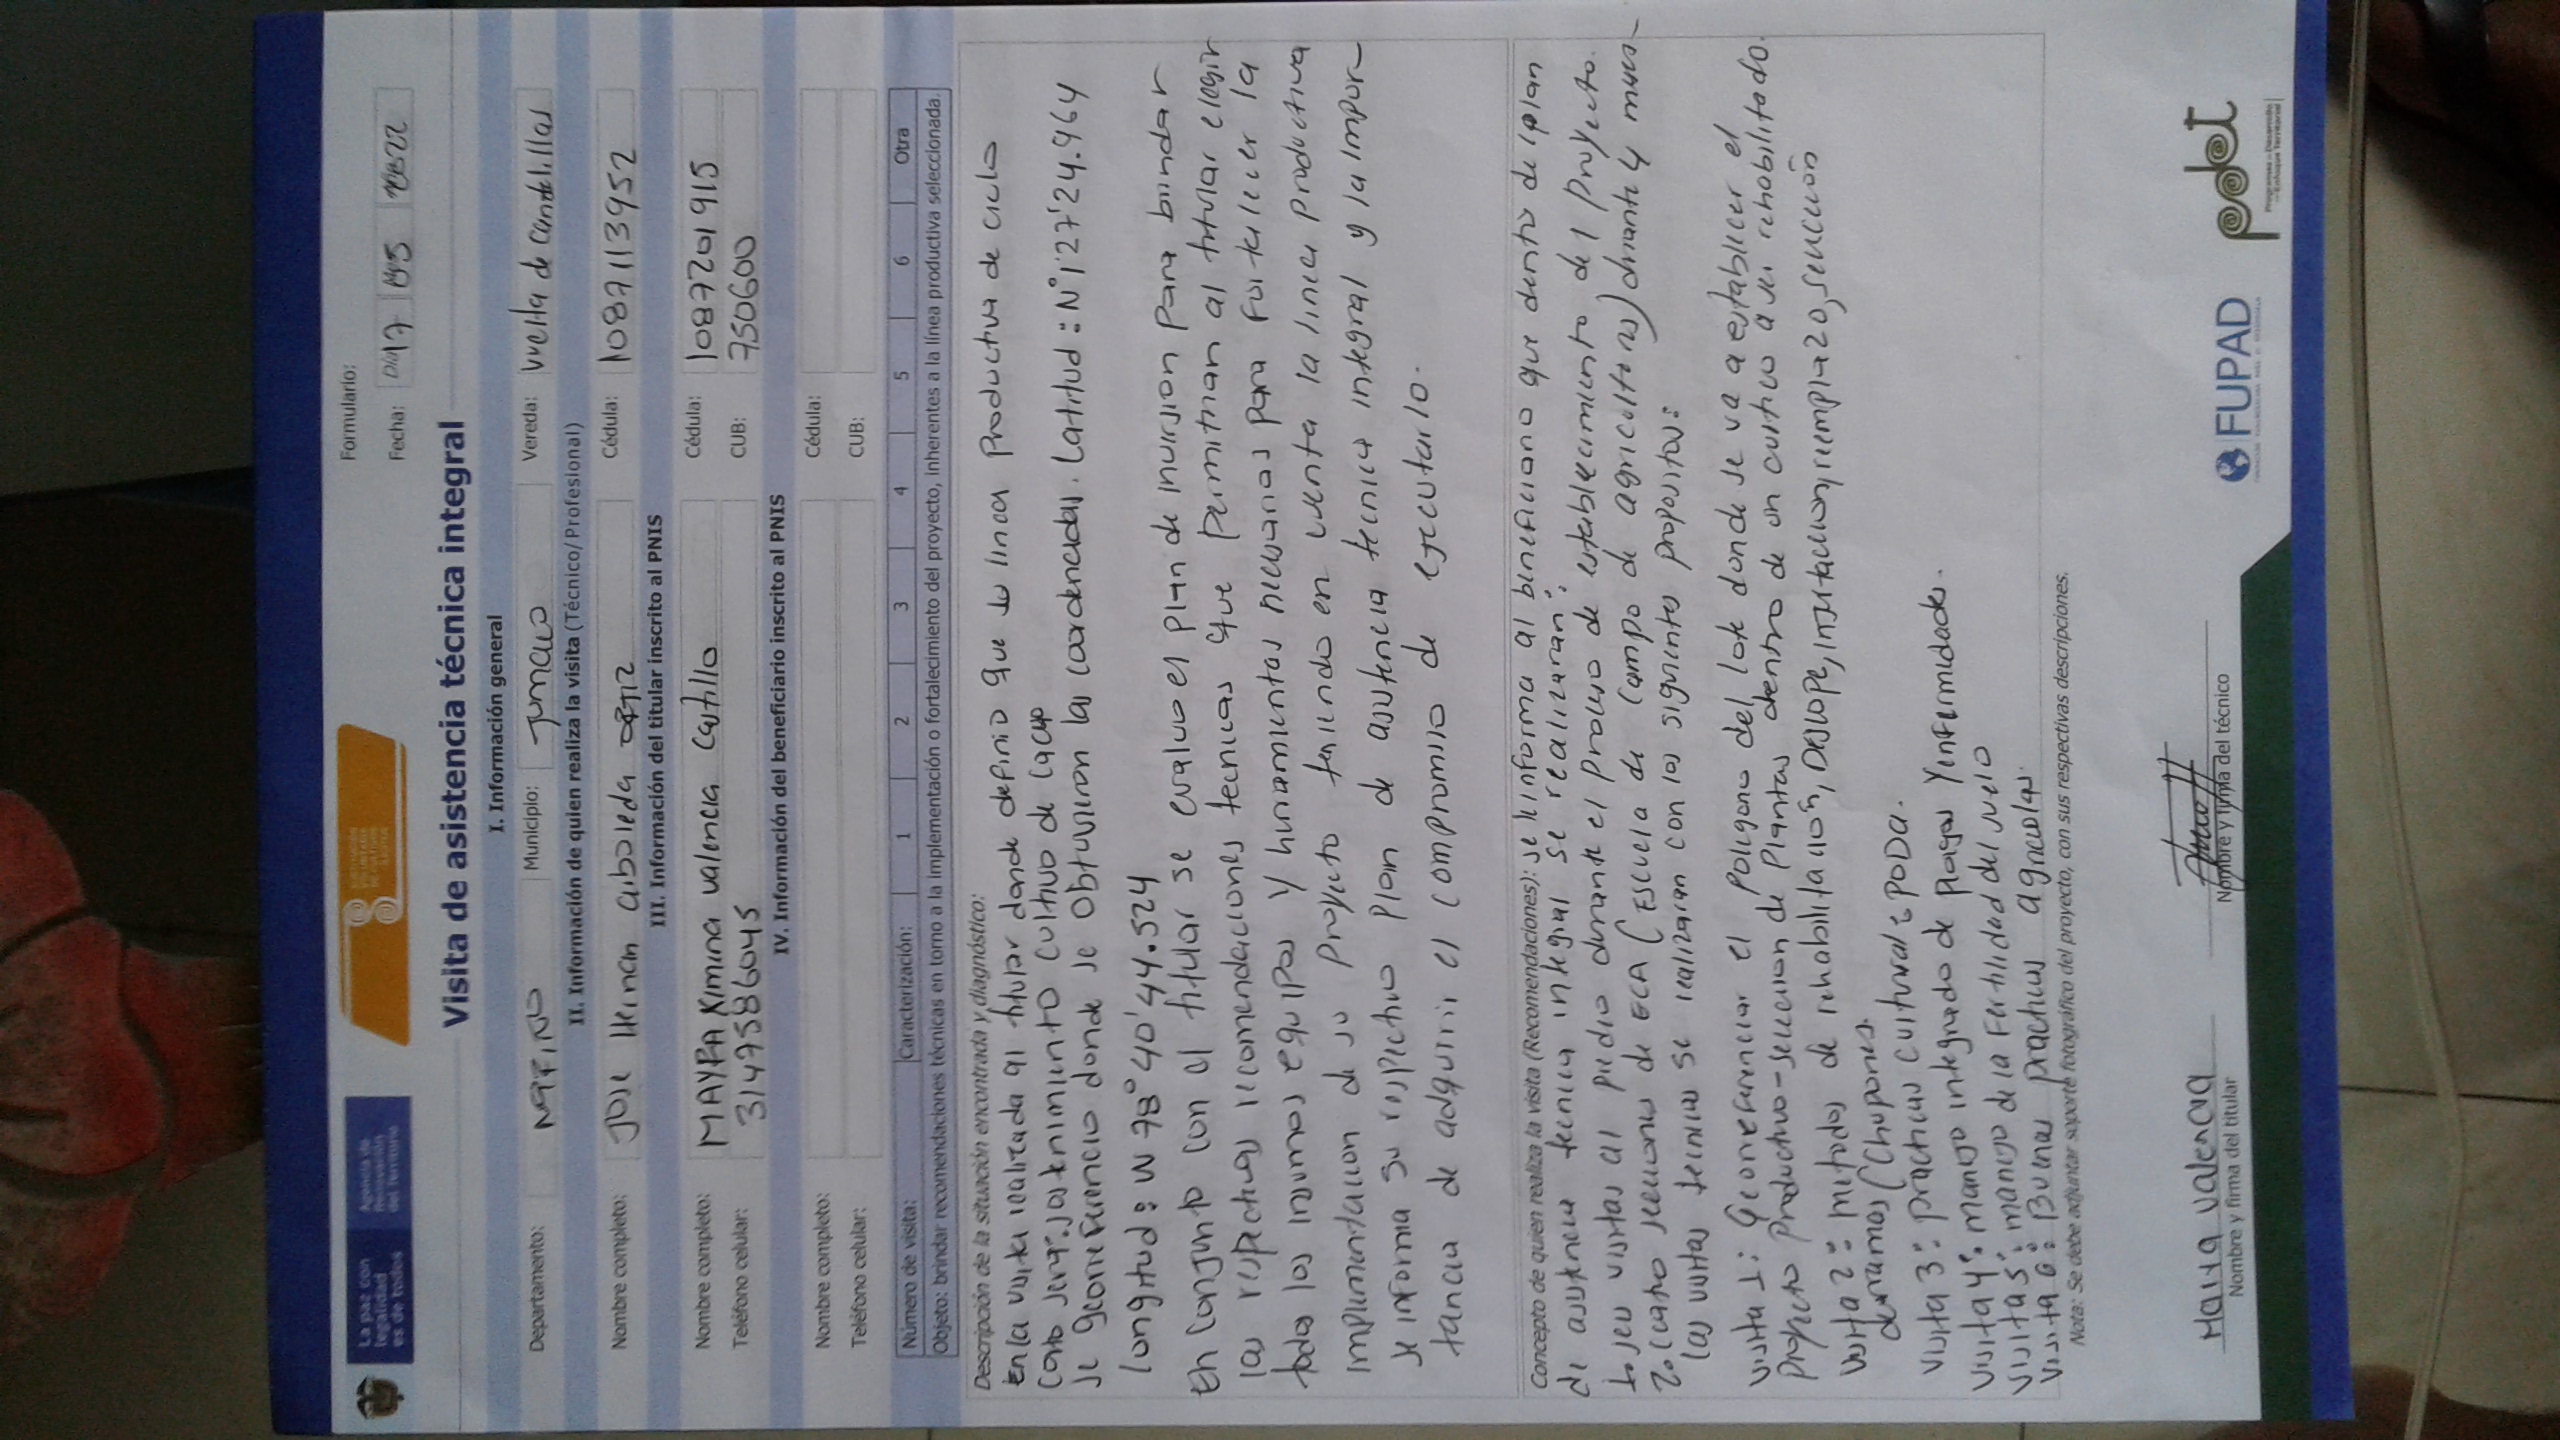 La paz con
legalidad
es de todos
Agencia de
Renovación
del Territorio
Formulario:
Fecha: Día 17 Mes 5 Año 22
Visita de asistencia técnica integral
I. Información general
Departamento: Nariño Municipio: Tumaco Vereda: vuelta de candelillas
II. Información de quien realiza la visita (Técnico/Profesional)
Nombre completo: Jose Hernan arboleda Cédula: 1087113952
III. Información del titular inscrito al PNIS
Nombre completo: MAYRA Ximina valencia Castillo Cédula: 1087201915
Teléfono celular: 3147586045 CUB: 750600
IV. Información del beneficiario inscrito al PNIS
Nombre completo: Cédula:
Teléfono celular: CUB:
Número de visita: Caracterización: 1 2 3 4 5 6 Otra
Objeto: brindar recomendaciones técnicas en torno a la implementación o fortalecimiento del proyecto, inherentes a la línea productiva seleccionada.
Descripción de la situación encontrada y diagnóstico:
En la visita realizada al titular donde definio que su linea productiva de ciclo
corto sera: sostenimiento cultivo de cacao
se georreferencio donde se obtuvieron las coordenadas. Latitud: N°1'27'24.964
Longitud: W 78°40'44.524
En conjunto con el titular se evaluo el plan de inversion para brindar
las respectivas recomendaciones tecnicas que permitiran al titular elegir
todos los insumos equipos y herramientas necesarias para fortalecer la
implementacion de su proyecto teniendo en cuenta la linea productiva
se informa su respectivo plan de asistencia tecnica integral y la impor-
tancia de adquirir el compromiso de ejecutarlo.
Concepto de quien realiza la visita (Recomendaciones): se le informa al beneficiario que dentro del plan
de asistencia tecnica integral se realizaran:
1. seis visitas al predio durante el proceso de establecimiento del proyecto.
2. cuatro secciones de ECA (Escuela de campo de agricultores) durante 4 meses
las visitas tecnicas se realizaran con los siguientes propositos:
visita 1: Georreferenciar el poligono del lote donde se va a establecer el
proyecto productivo-seleccion de plantas dentro de un cultivo a ser rehabilitado.
visita 2: metodos de rehabilitación, DESCOPE, injertacion, reemplazo, seleccion
de ramas (chupones).
visita 3: practicas culturales PODA.
visita 4: manejo integrado de plagas y enfermedades.
visita 5: manejo de la fertilidad del suelo
visita 6: Buenas practicas agricolas.
Nota: Se debe adjuntar soporte fotográfico del proyecto, con sus respectivas descripciones.
Mayra Valencia
Nombre y firma del titular
Nombre y firma del técnico
FUPAD
pdet
Programas de Desarrollo
con Enfoque Territorial